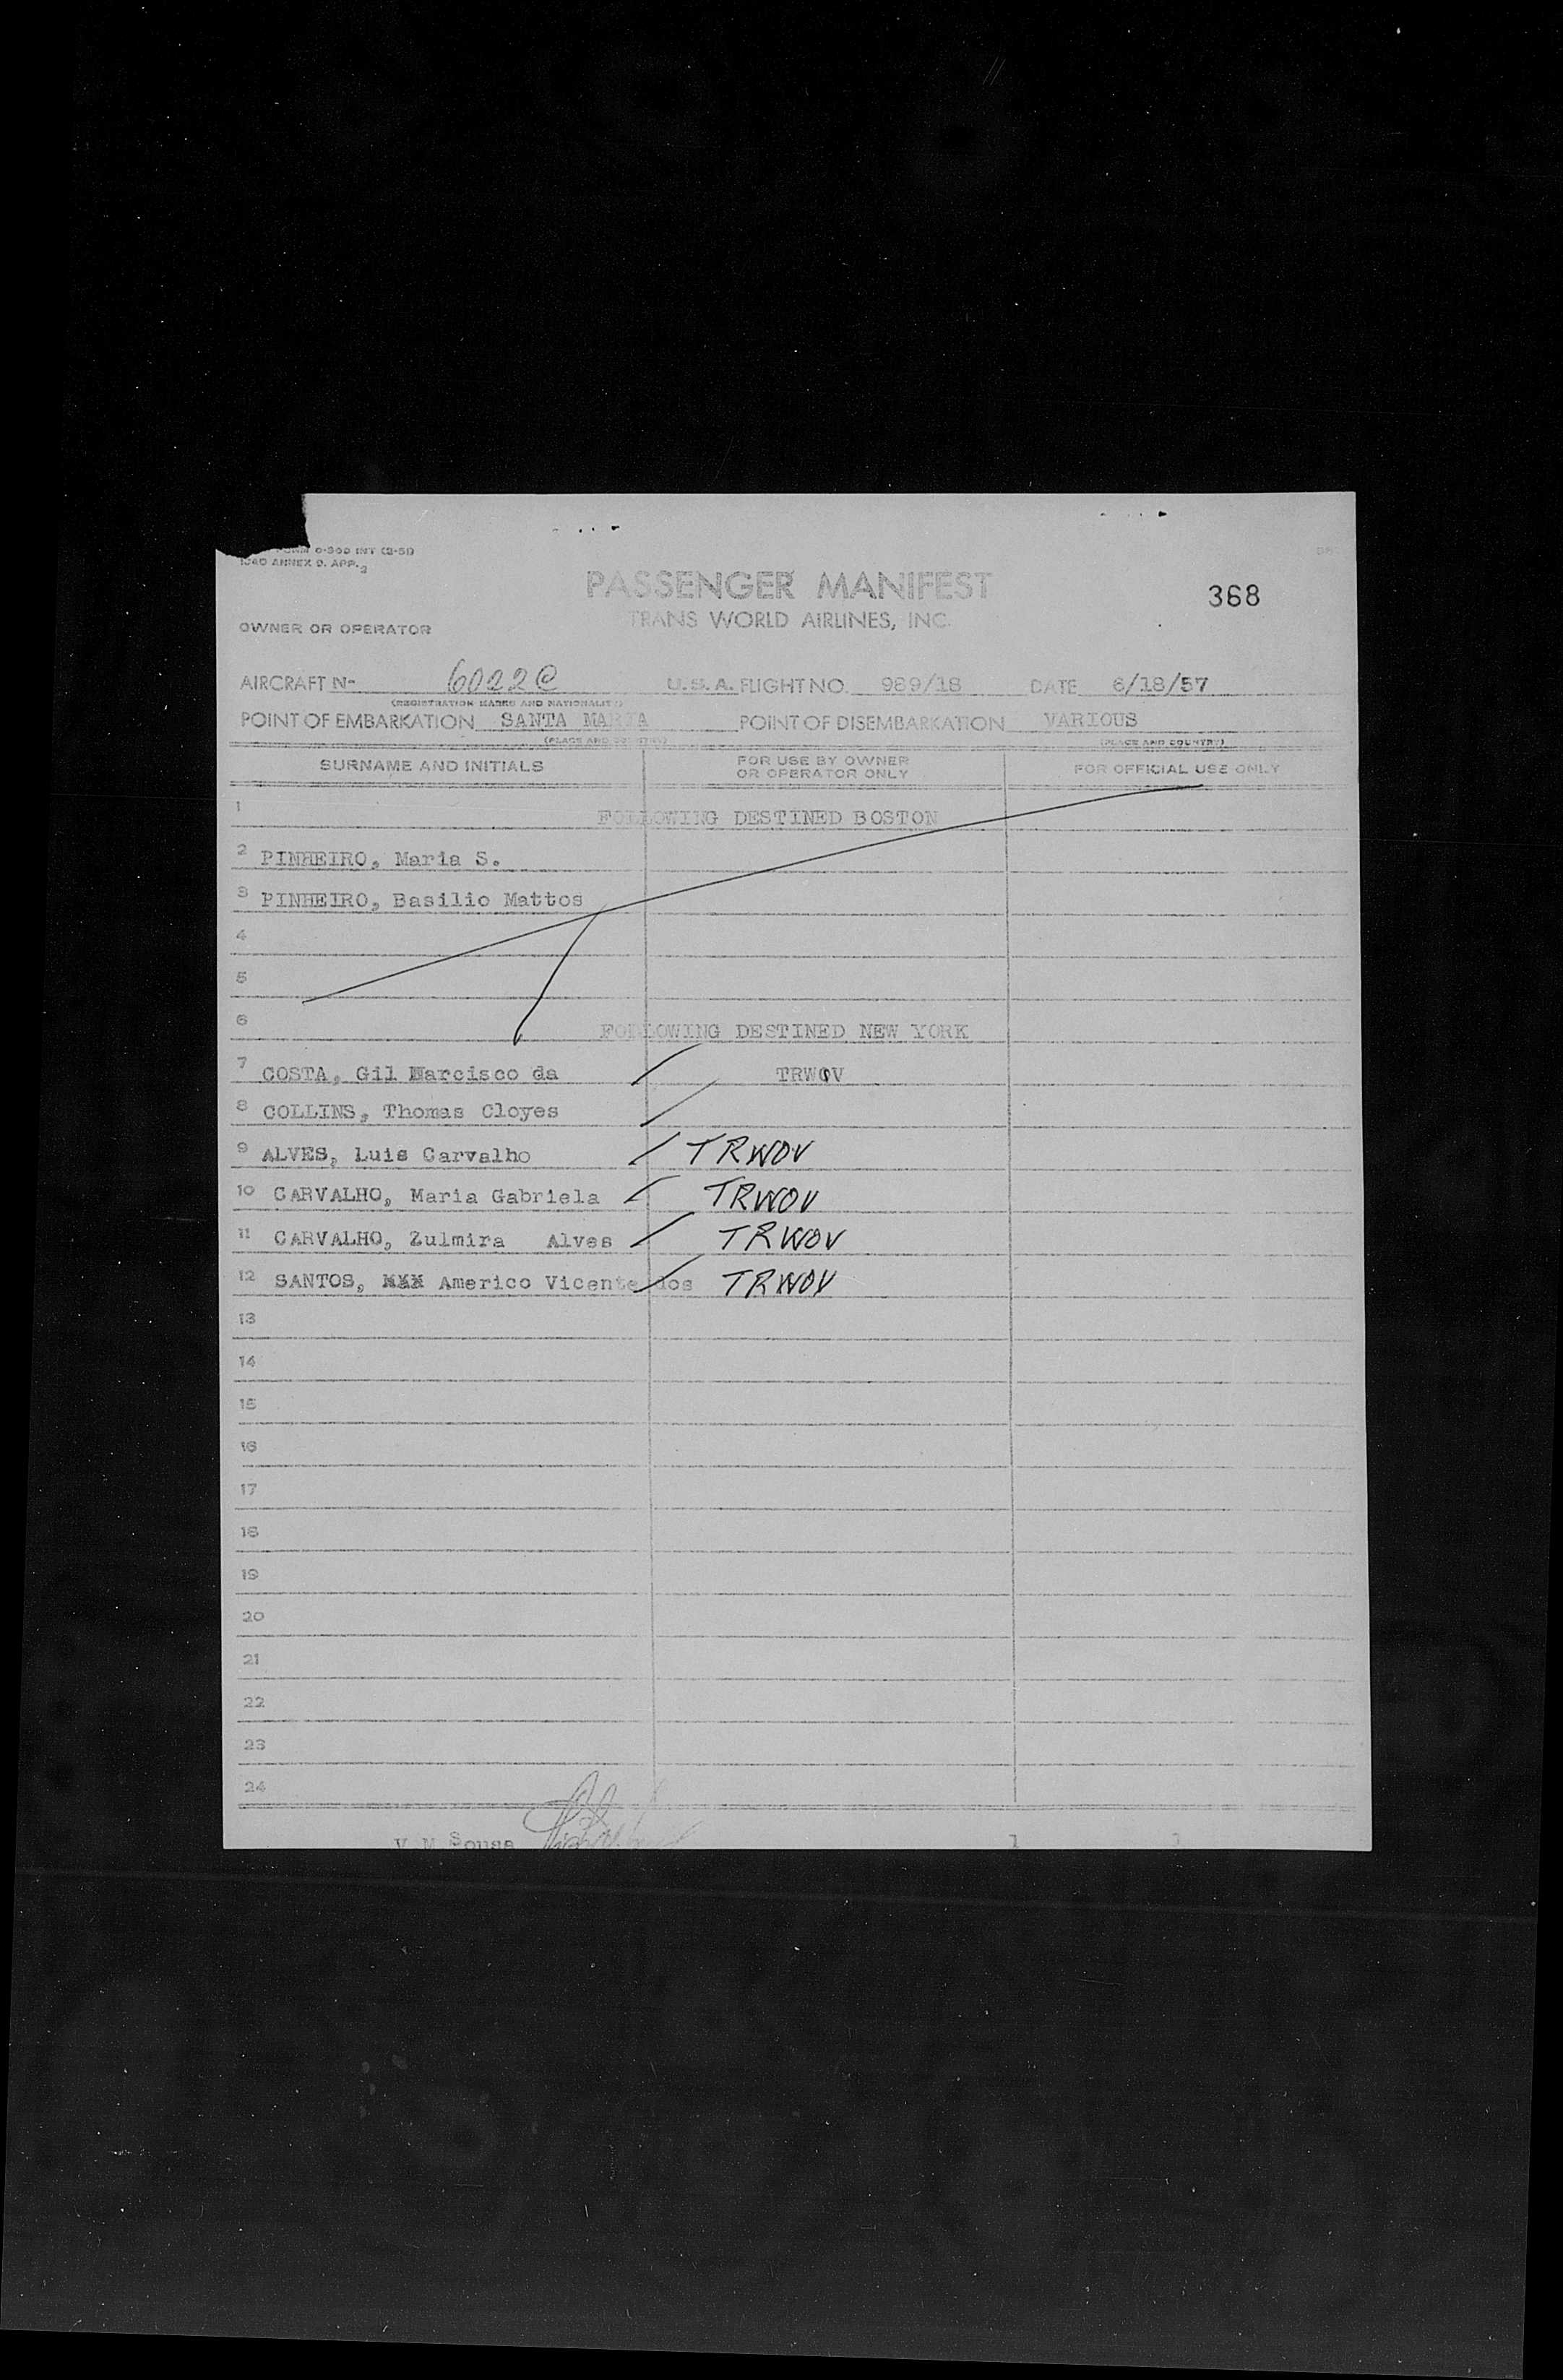 FORM 0-300 INT (2-51)
ICAO ANNEX 9, APP. 2
PASSENGER MANIFEST
368
TRANS WORLD AIRLINES, INC.
OWNER OR OPERATOR
AIRCRAFT N- 6022C U.S.A. FLIGHT NO. 989/18 DATE 6/18/57
(REGISTRATION MARKS AND NATIONALITY)
POINT OF EMBARKATION SANTA MARIA POINT OF DISEMBARKATION VARIOUS
(PLACE AND COUNTRY) (PLACE AND COUNTRY)
SURNAME AND INITIALS FOR USE BY OWNER OR OPERATOR ONLY FOR OFFICIAL USE ONLY
1 FOLLOWING DESTINED BOSTON
2 PINHEIRO, Maria S.
3 PINHEIRO, Basilio Mattos
4
5
6 FOLLOWING DESTINED NEW YORK
7 COSTA, Gil Narcisco da TRWOV
8 COLLINS, Thomas Cloyes
9 ALVES, Luis Carvalho TRWOV
10 CARVALHO, Maria Gabriela TRWOV
11 CARVALHO, Zulmira Alves TRWOV
12 SANTOS, Americo Vicente dos TRWOV
13
14
15
16
17
18
19
20
21
22
23
24
V.M.Sousa 1